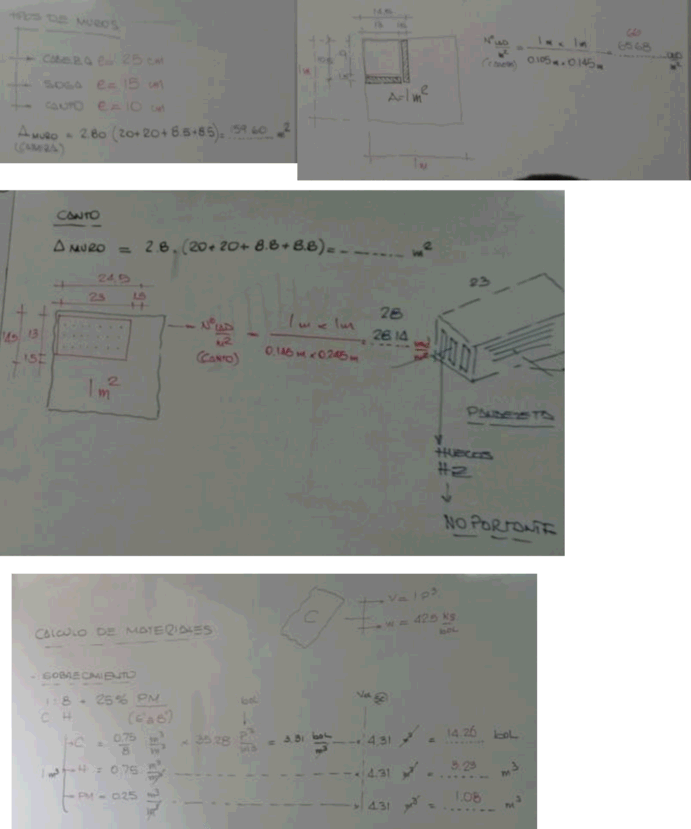 TIPOS DE MUROS:
CABEZA e= 25 cm
SOGA e= 15 cm
CANTO e= 10 cm
A MURO = 2.80 (20+20+8.5+8.5)= 159.60 m²
(CABEZA)
14.5
13 1.5
1m
A=1m²
1m
Nº LAD/m² (CABEZA) = 1m x 1m / 0.105m x 0.145m = 65.68
CANTO
A MURO = 2.8 . (20+20+8.8+8.8)= ------ m²
24.5
23 1.5
14.5 13
1.5
1m²
Nº LAD/m² (CANTO) = 1m x 1m / 0.145m x 0.245m = 28.14
28
23
PANDERETA
HUECOS
HZ
NO PORTANTE
CALCULO DE MATERIALES
C
V = 1 p³
w = 42.5 kg/bol
- SOBRECIMIENTO
1:8 + 25% PM
C H
1 m³
C = 0.75/8 m³/m³ x 35.28 p³/m³ = 3.31 bol/m³ x 4.31 m³ = 14.26 bol
H = 0.75 m³/m³ x 4.31 m³ = 3.23 m³
PM = 0.25 m³/m³ x 4.31 m³ = 1.08 m³